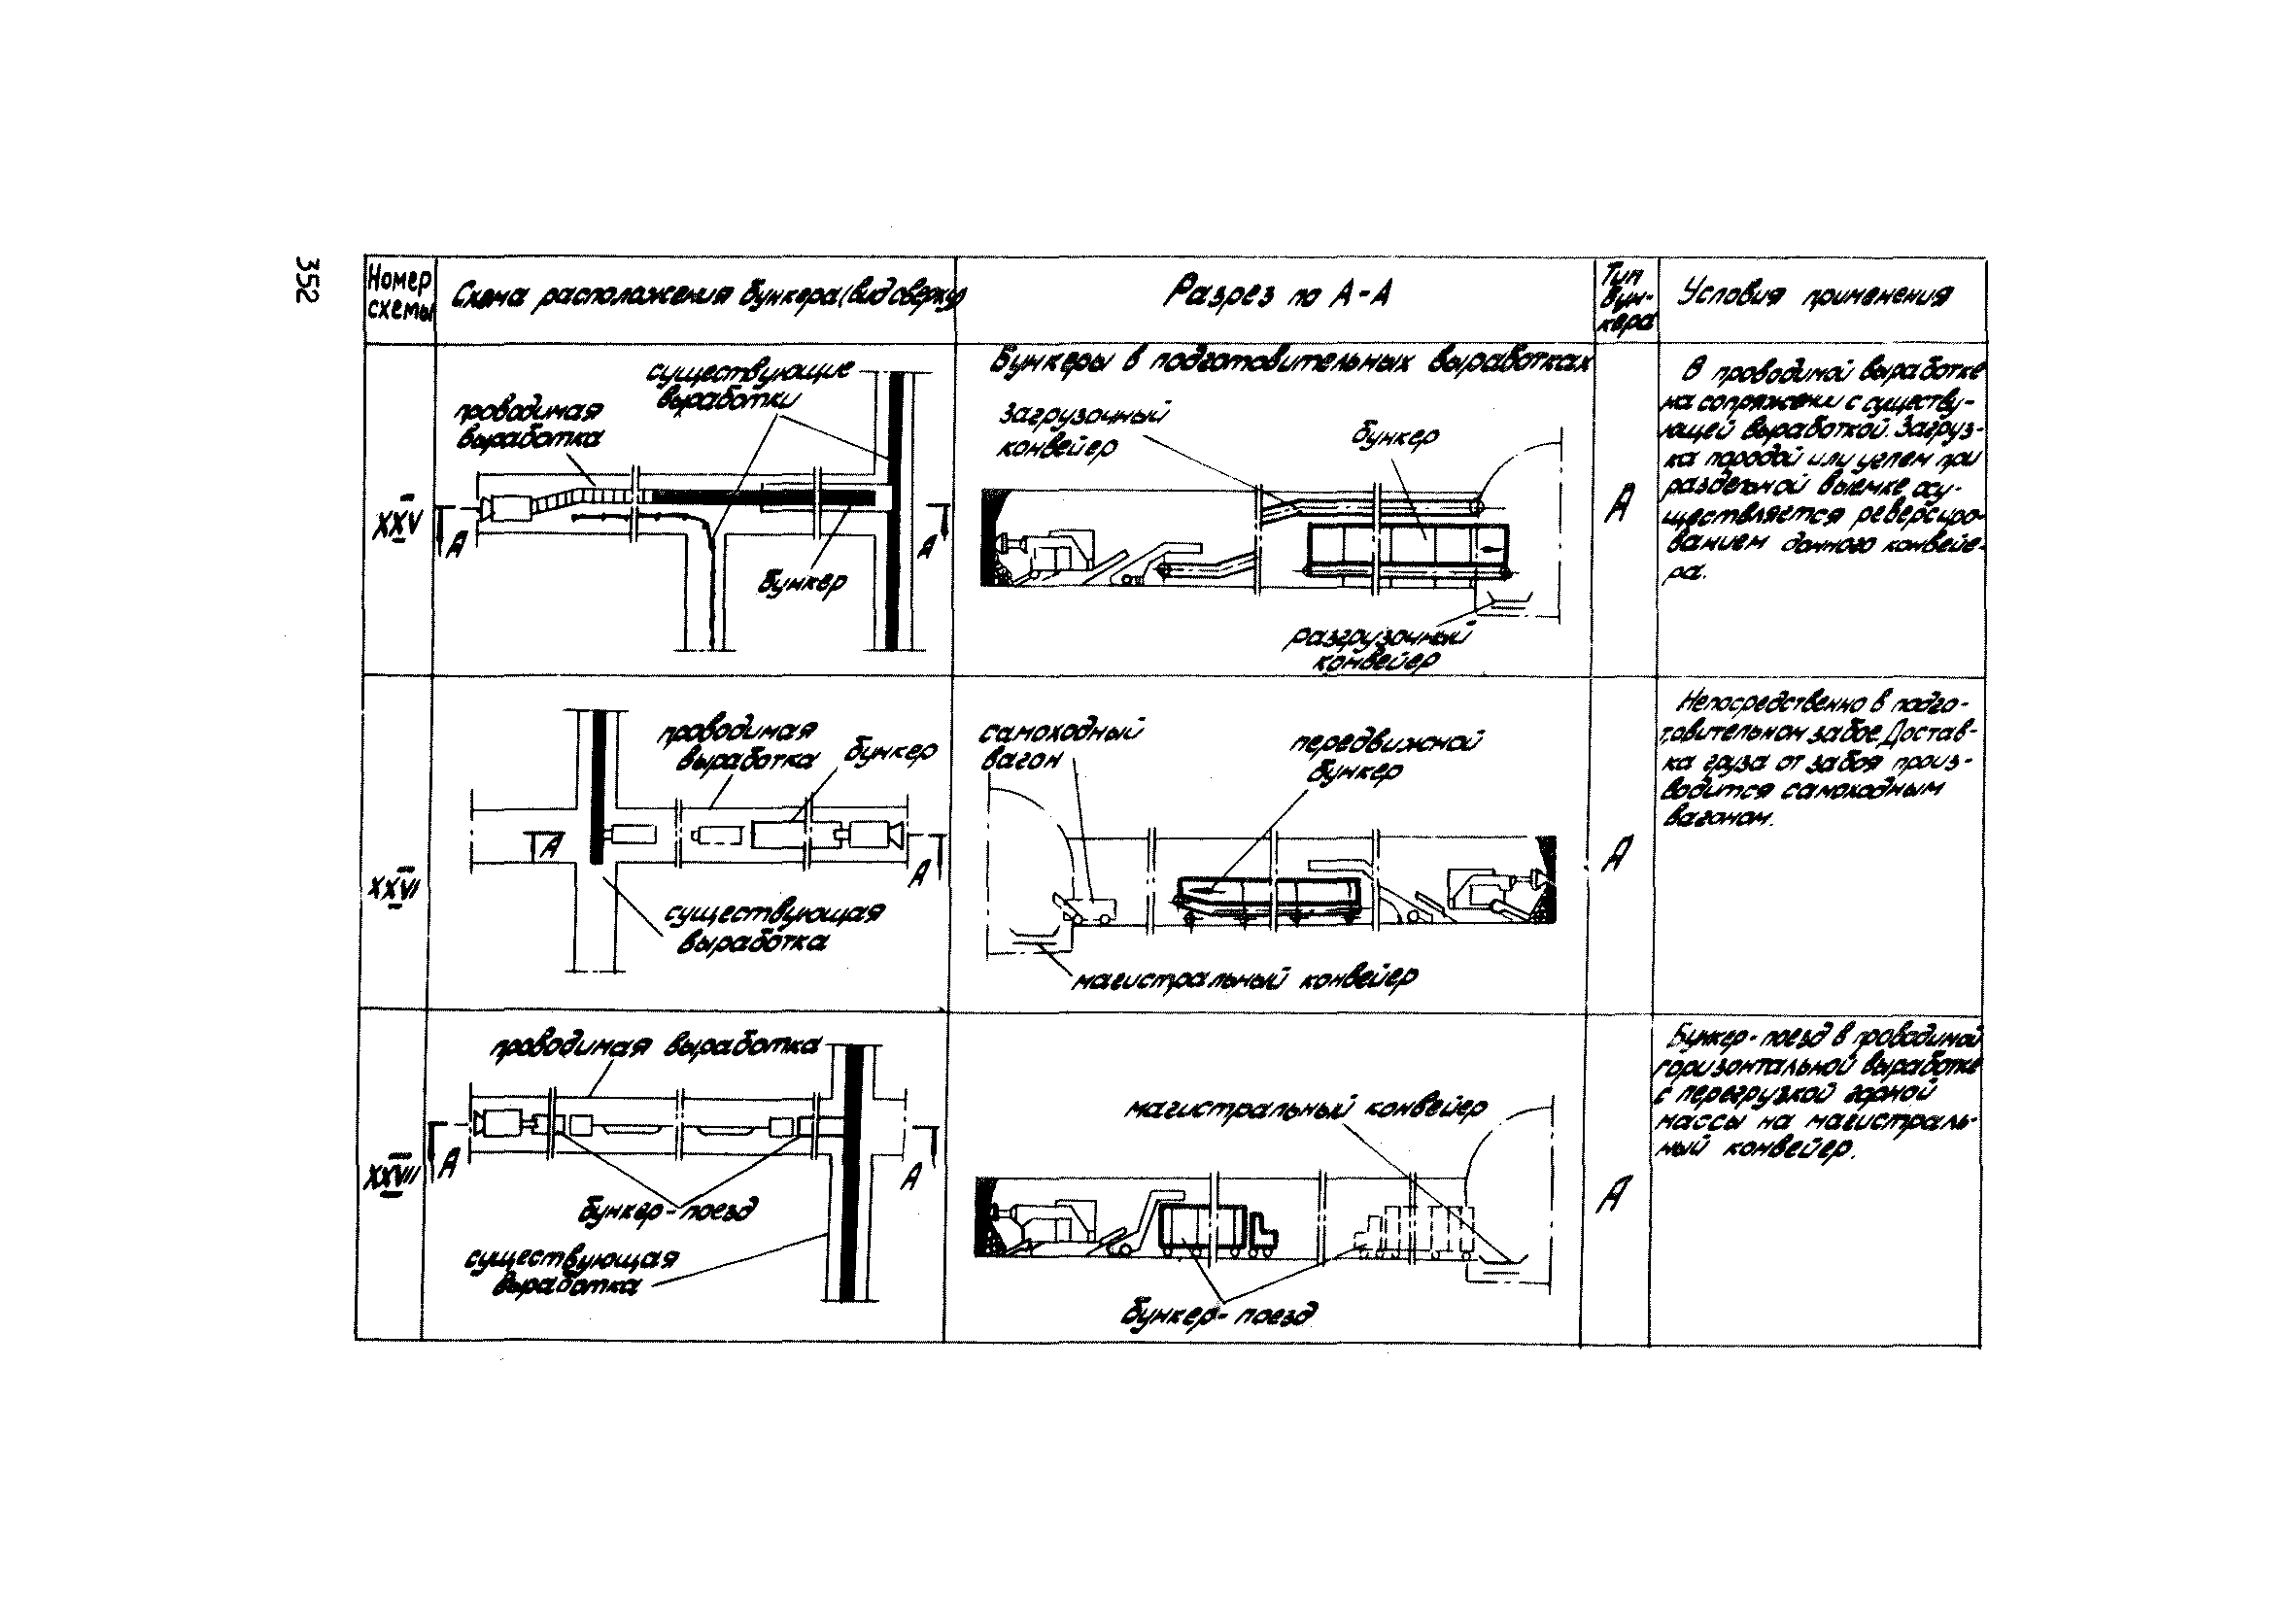 352
Номер
схемы
Схема расположения бункера (вид сверху)
Разрез по А-А
Тип
бун-
кера
Условия применения
XXV
существующие
выработки
проводимая
выработка
А
А
бункер
Бункеры в подготовительных выработках
загрузочный
конвейер
бункер
разгрузочный
конвейер
А
В проводимой выработке
на сопряжении с существу-
ющей выработкой. Загруз-
ка породой или углем при
раздельной выемке осу-
ществляется реверсиро-
ванием донного конвейе-
ра.
XXVI
проводимая
выработка
бункер
А
А
существующая
выработка
самоходный
вагон
передвижной
бункер
магистральный конвейер
А
Непосредственно в подго-
товительном забое. Достав-
ка груза от забоя произ-
водится самоходным
вагоном.
XXVII
проводимая выработка
А
А
бункер-поезд
существующая
выработка
магистральный конвейер
бункер-поезд
А
Бункер-поезд в проводимой
горизонтальной выработке
с перегрузкой горной
массы на магистраль-
ный конвейер.